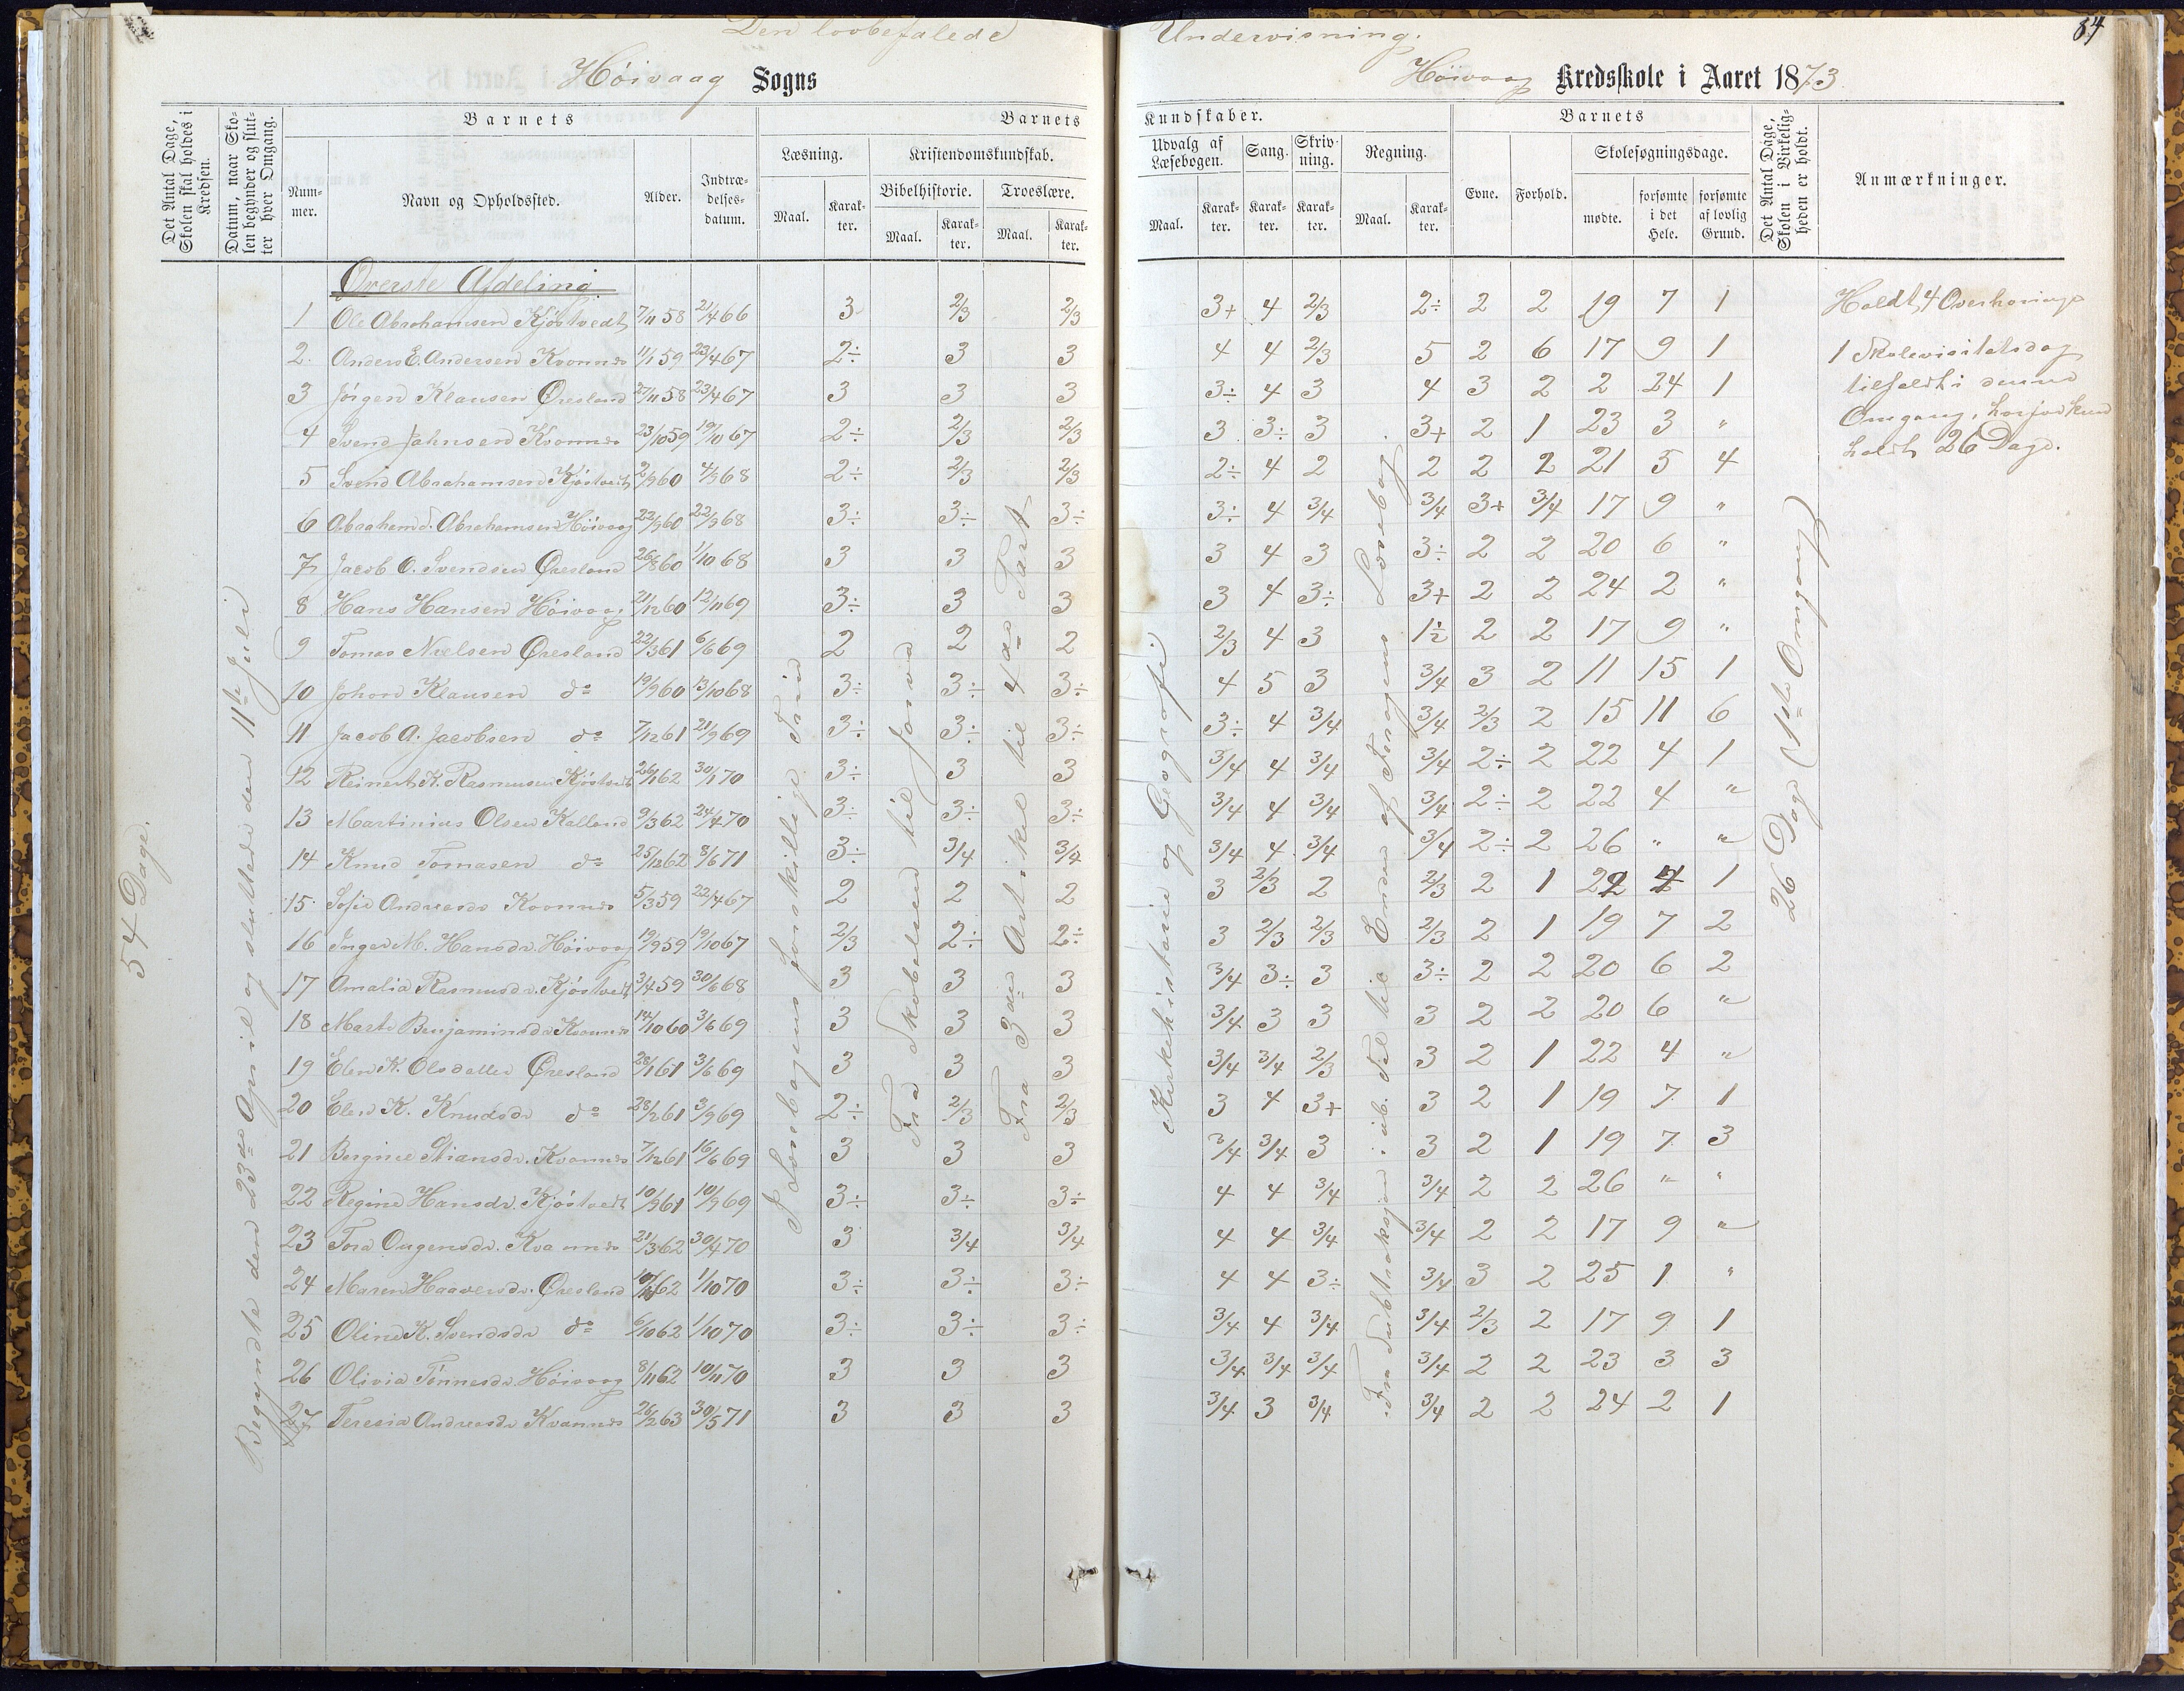 Den lovbefalede Undervisning.
84
Høivaag Sogns
Høivaag Kredsskole i Aaret 1873
Det Antal Dage, Skolen skal holdes i Kredsen.
Datum, naar Skolen begynder og slutter hver Omgang.
Barnets
Barnets
Kundskaber.
Barnets
Det Antal Dage, Skolen i Virkeligheden er holdt.
Anmærkninger.
Nummer.
Navn og Opholdssted.
Alder.
Indtrædelsesdatum.
Læsning.
Kristendomskundskab.
Bibelhistorie.
Troeslære.
Udvalg af Læsebogen.
Sang.
Skrivning.
Regning.
Evne.
Forhold.
Skolesøgningsdage.
Maal.
Karakter.
Maal.
Karakter.
Maal.
Karakter.
Maal.
Karakter.
Karakter.
Karakter.
Maal.
Karakter.
mødte.
forsømte i det Hele.
forsømte af lovlig Grund.
54 Dage.
Begyndte den 23de April og sluttede den 11te Juli
I Læsebogens forskjellige Trin
Fra Skabelsen til
Fra 3die Artikel til 4de Part
Kirkehistorie og Geografi
Fra Subtraksjon i ub. Tal til Enden af Forogens Lærebog
26 Dage (1ste Omgang)
Øverste Afdeling
1 Ole Abrahamsen Kjøstvedt 7/11 58 21/4 66 3 2/3 2/3 3+ 4 2/3 2÷ 2 2 19 7 1
2. Anders E. Andersen Kvannes 11/1 59 23/4 67 2÷ 3 3 4 4 2/3 5 2 6 17 9 1
3 Jørgen Klausen Øresland 27/11 58 23/4 67 3 3 3 3÷ 4 3 4 3 2 2 24 1
4 Svend Jahnsen Kvannes 23/10 59 19/10 67 2÷ 2/3 2/3 3 3÷ 3 3+ 2 1 23 3 "
5 Svend Abrahamsen Kjøstvedt 2/9 60 4/9 68 2÷ 2/3 2/3 2÷ 4 2 2 2 2 21 5 4
6 Abraham T. Abrahamsen Høivaag 22/9 60 22/9 68 3÷ 3÷ 3÷ 3÷ 4 3/4 3/4 3+ 3/4 17 9 "
7 Jacob O. Svendsen Øresland 26/8 60 1/10 68 3 3 3 3 4 3 3÷ 2 2 20 6 "
8 Hans Hansen Høivaag 21/12 60 12/11 69 3÷ 3 3 3 4 3÷ 3+ 2 2 24 2 "
9 Tomas Nielsen Øresland 22/3 61 6/6 69 2 2 2 2/3 4 3 1½ 2 2 17 9 "
10 Johan Klausen do 19/9 60 13/10 68 3÷ 3÷ 3÷ 4 5 3 3/4 3 2 11 15 1
11 Jacob A. Jacobsen do 7/12 61 21/9 69 3÷ 3÷ 3÷ 3÷ 4 3/4 3/4 2/3 2 15 11 6
12 Reinert K. Rasmusen Kjøstvedt 26/1 62 30/1 70 3÷ 3 3 3/4 4 3/4 3/4 2÷ 2 22 4 1
13 Martinius Olsen Kalland 9/3 62 24/4 70 3÷ 3÷ 3÷ 3/4 4 3/4 3/4 2÷ 2 22 4 "
14 Knud Tomasen do 25/12 62 8/6 71 3÷ 3/4 3/4 3/4 4 3/4 3/4 2÷ 2 26 " "
15. Sofie Andreasdr Kvannes 5/3 59 22/4 67 2 2 2 3 2/3 2 2/3 2 1 22 4 1
16 Inger M. Hansdr. Høivaag 19/9 59 19/10 67 2/3 2÷ 2÷ 3 2/3 2/3 2/3 2 1 19 7 2
17 Amalia Rasmusdr. Kjøstvedt 3/4 59 30/6 68 3 3 3 3/4 3÷ 3 3÷ 2 2 20 6 2
18 Marte Benjaminsdr Kvannes 14/10 60 3/6 69 3 3 3 3/4 3 3 3 2 2 20 6 "
19 Elen K. Olsdatter Øresland 28/1 61 3/6 69 3 3 3 3/4 3/4 2/3 3 2 1 22 4 "
20 Elen K. Knudsdr do 28/2 61 3/9 69 2÷ 2/3 2/3 3 4 3+ 3 2 1 19 7 1
21 Bergine Stiansdr. Kvannes 7/12 61 16/6 69 3 3 3 3/4 3/4 3 3 2 1 19 7 3
22 Regine Hansdr. Kjøstvedt 10/9 61 10/9 69 3÷ 3÷ 3÷ 4 4 3/4 3/4 2 2 26 " "
23 Tora Ougensdr. Kvannes 21/3 62 30/4 70 3 3/4 3/4 4 4 3/4 3/4 2 2 17 9 "
24 Maren Haaversdr. Øresland 62 1/10 70 3÷ 3÷ 3÷ 4 4 3÷ 3/4 3 2 25 1 "
25 Oline K. Svendsdr do 6/10 62 1/10 70 3÷ 3÷ 3÷ 3/4 4 3/4 3/4 2/3 2 17 9 1
26 Olivia Tønnesdr. Høivaag 8/11 62 10/11 70 3 3 3 3/4 3/4 3/4 3/4 2 2 23 3 3
27 Teresia Andreasdr Kvannes 26/2 63 30/5 71 3 3 3 3/4 3 3/4 3/4 2 2 24 2 1
Holdt 4 Overhørings
1 Skolevisitatsdag
tilfaldt i denne
Omgang, hvorfor kun
holdt 26 Dage.